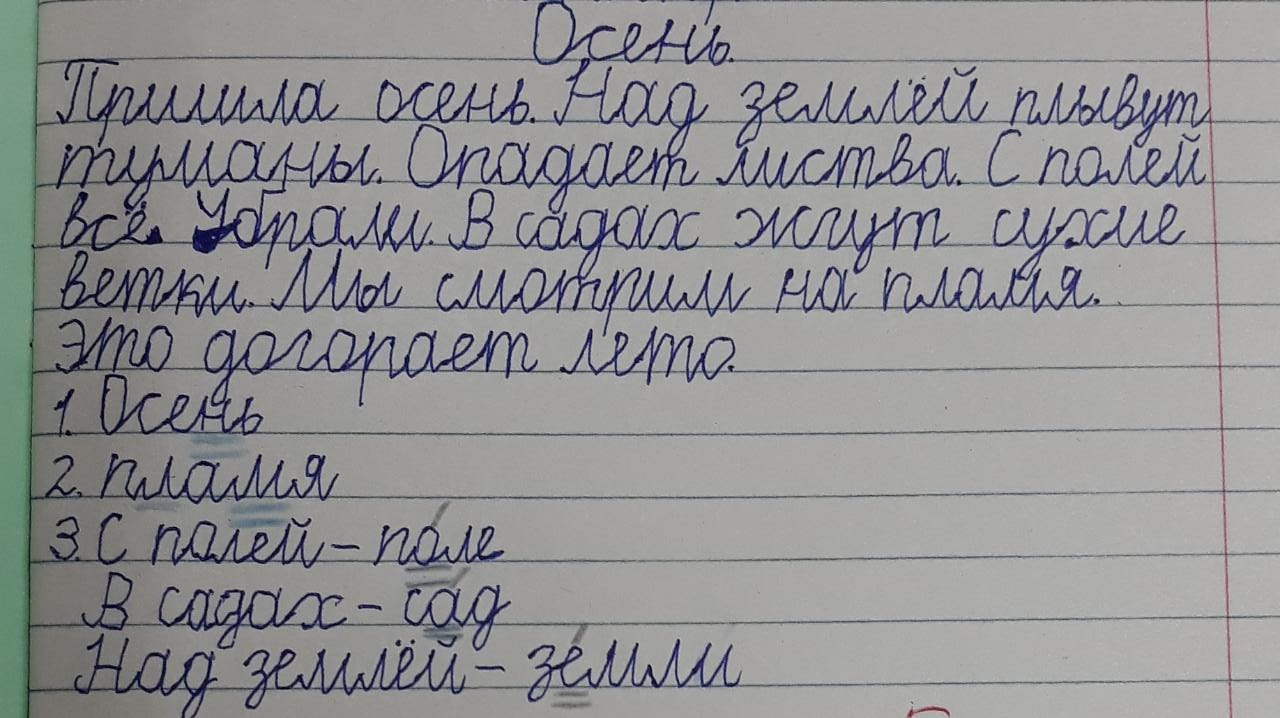 Осень.
Пришла осень. Над землёй плывут
туманы. Опадает листва. С полей
всё убрали. В садах жгут сухие
ветки. Мы смотрим на пламя.
Это догорает лето.
1. Осень
2. пламя
3. С полей – поле
В садах – сад
Над землёй – земли